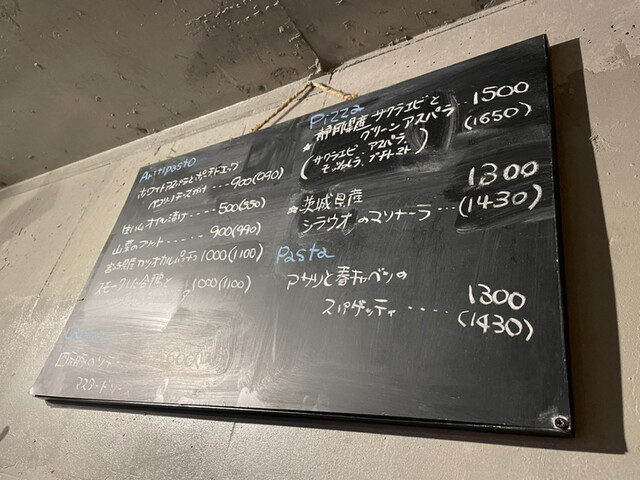 Antipasto
ホワイトアスパラとポーチドエッグ
ペコリーノチーズがけ ---- 900(990)
オイル漬け ---- 500(550)
山菜のフリット ---- 900(990)
カツオカルパッチョ 1000(1100)
スモークした合鴨と 1000(1100)
Pizza
★静岡県産 サクラエビと
グリーンアスパラ ... 1500
(1650)
(サクラエビ、アスパラ、
モッツァレラ、プチトマト)
★茨城県産 1300
シラウオのマリナーラ ... (1430)
Pasta
アサリと春キャベツの 1300
スパゲッティ .... (1430)